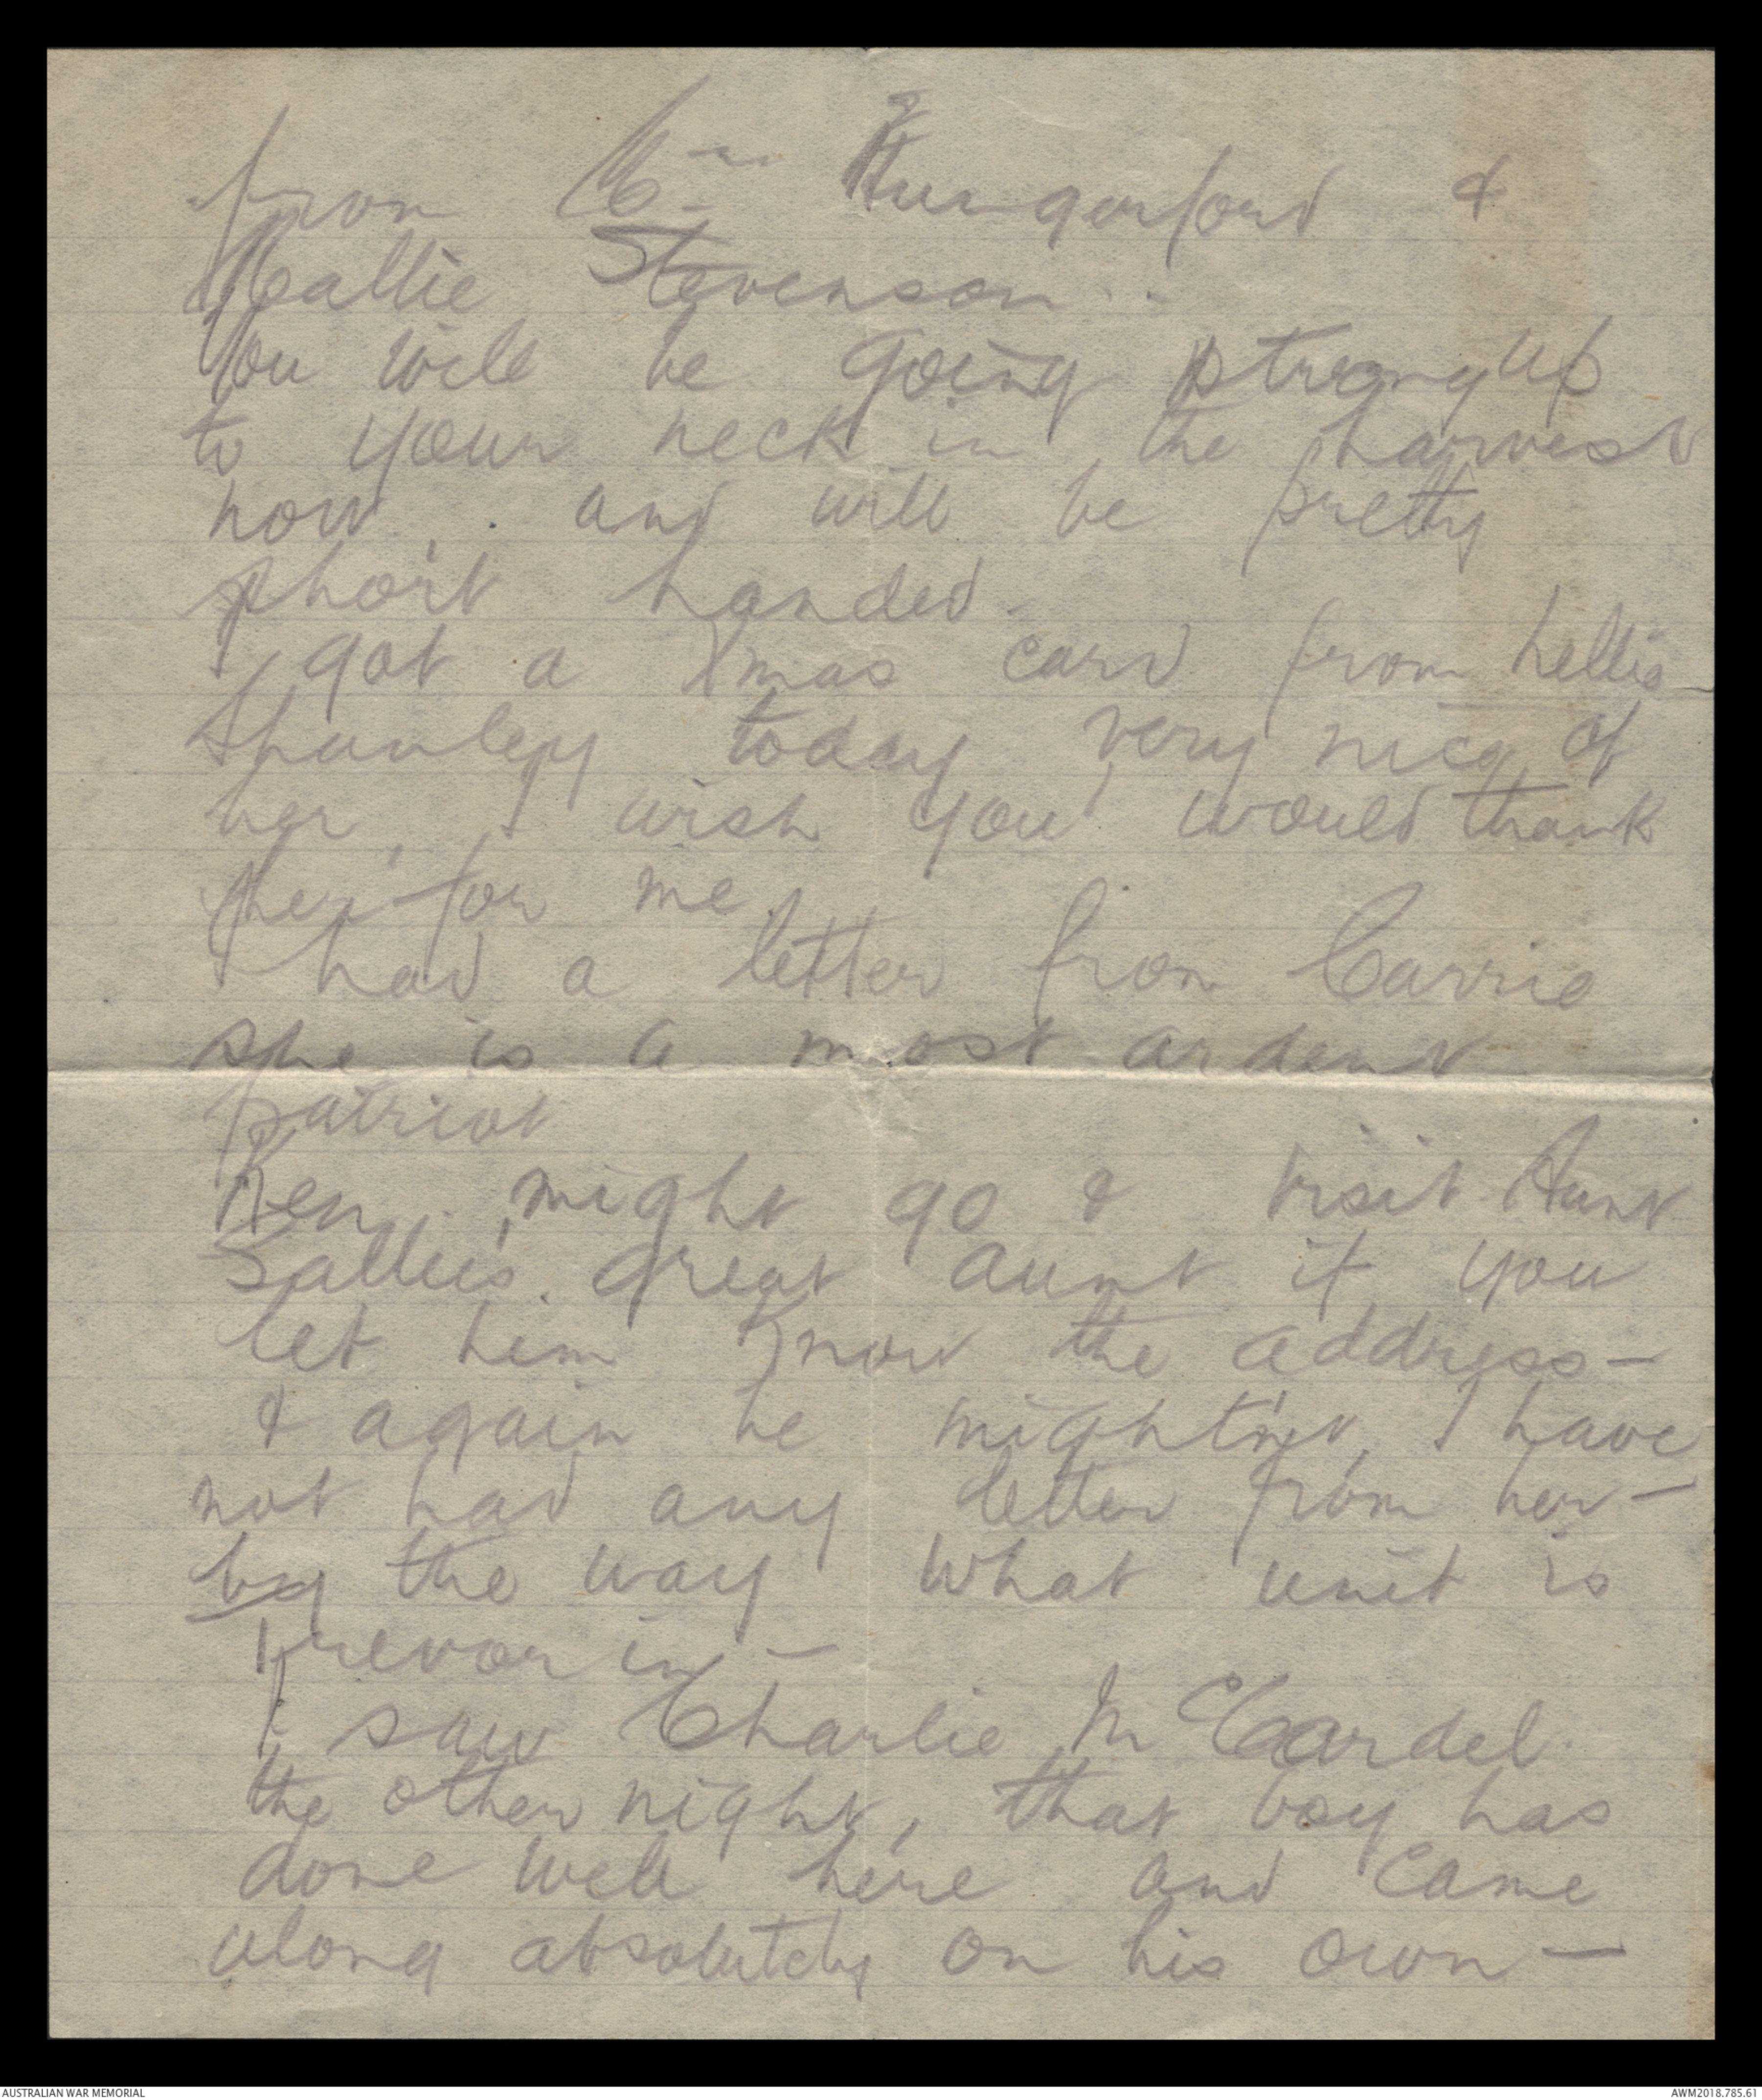 from Mrs Hungerford &
Mallie Stevenson..
You will be going strong up
to your neck in the harvest
now, and will be pretty
short handed.
I got a Xmas card from Nellie
Shanley today very nice of
her, I wish you would thank
her for me.
I had a letter from Carrie
she is a most ardent
patriot
Ken might go & visit Aunt
Sallie's great aunt if you
let him know the address—
& again he mightn't, I have
not had any letter from her—
by the way what unit is
Trevor in—
I saw Charlie McCardel
the other night, that boy has
done well here and came
along absolutely on his own—
AUSTRALIAN WAR MEMORIAL
AWM2018.785.61